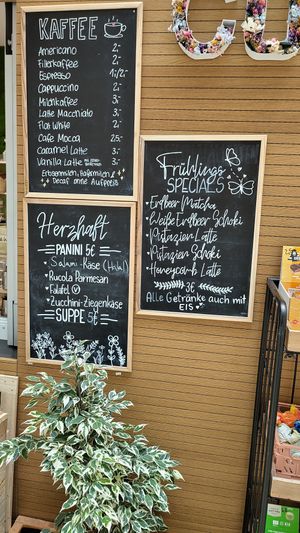 KAFFEE
Americano 2,-
Filterkaffee 2,-
Espresso 1,-/2,-
Cappuccino 2,-
Milchkaffee 3,-
Latte Macchiato 3,-
Flat White 2,-
Cafe Mocca 2,50,-
Caramel Latte 3,-
Vanilla Latte 3,-
Erbsenmilch, Hafermilch &
Decaf ohne Aufpreis
Frühlings
SPECIALS
• Erdbeer Matcha
• Weiße Erdbeer Schoki
• Pistazien Latte
• Pistazien Schoki
• Honeycomb Latte
3€
Alle Getränke auch mit
EIS
Herzhaft
PANINI 5€
• Salami-Käse (Halal)
• Rucola Parmesan
• Falafel V
• Zucchini-Ziegenkäse
SUPPE 5€